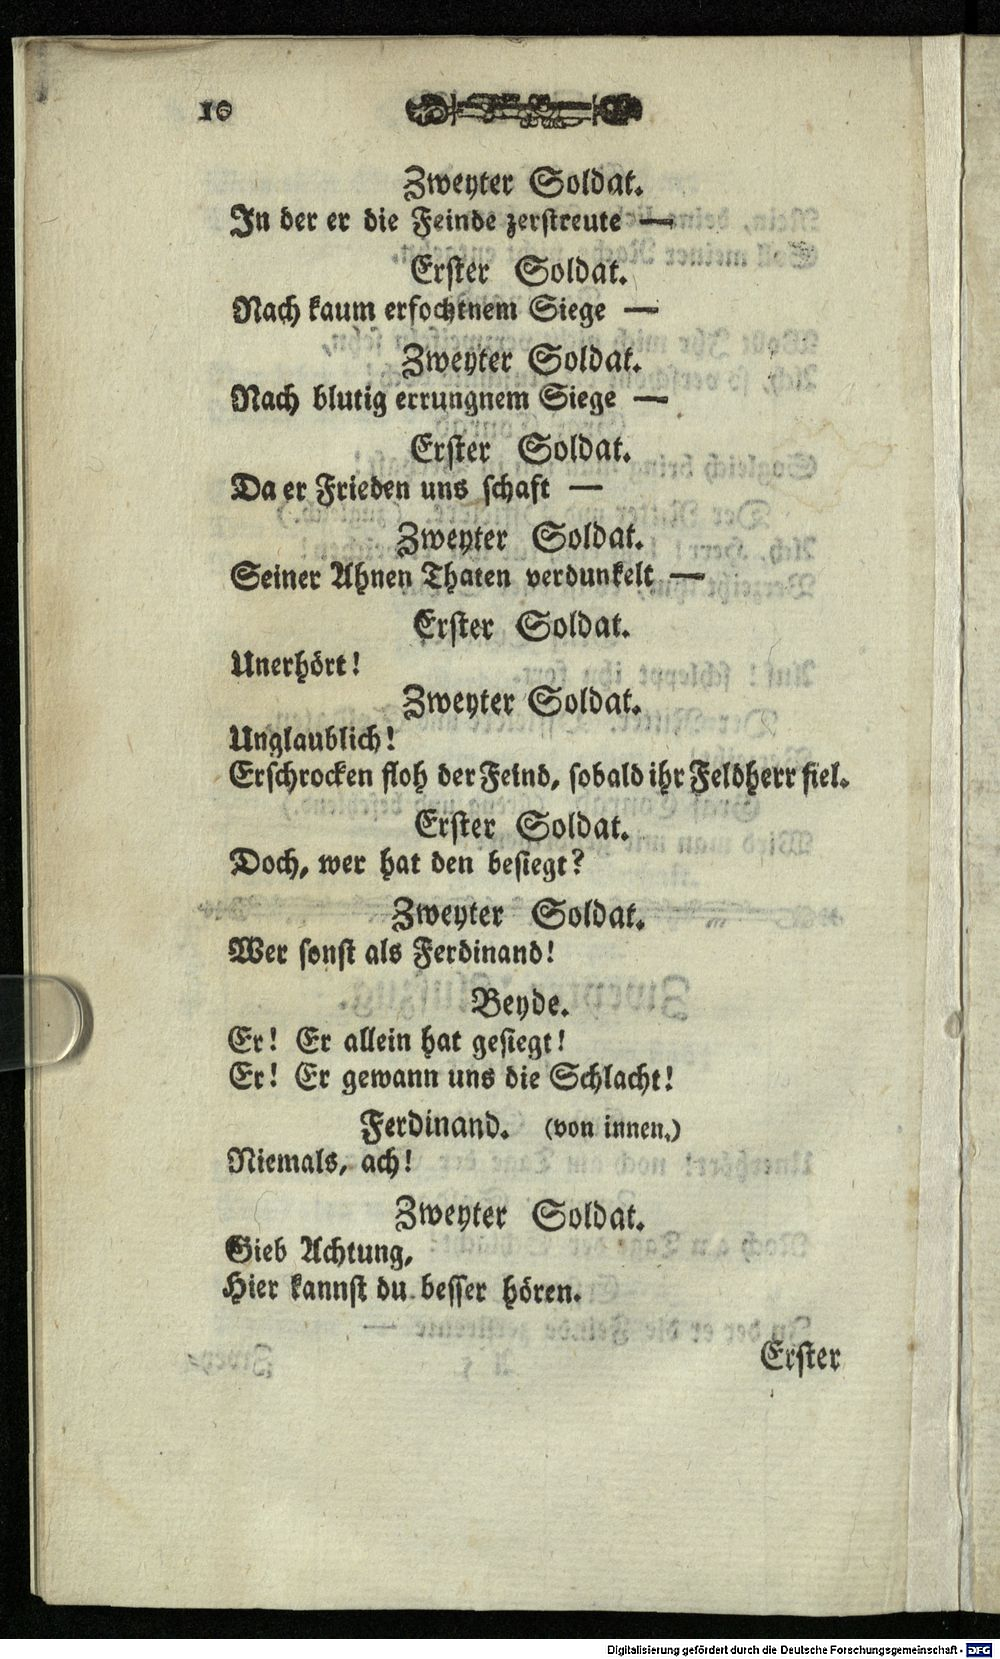 10
Zweyter Soldat.
In der er die Feinde zerstreute —
Erster Soldat.
Nach kaum erfochtnem Siege —
Zweyter Soldat.
Nach blutig errungnem Siege —
Erster Soldat.
Da er Frieden uns schaft —
Zweyter Soldat.
Seiner Ahnen Thaten verdunkelt —
Erster Soldat.
Unerhört!
Zweyter Soldat.
Unglaublich!
Erschrocken floh der Feind, sobald ihr Feldherr fiel.
Erster Soldat.
Doch, wer hat den besiegt?
Zweyter Soldat.
Wer sonst als Ferdinand!
Beyde.
Er! Er allein hat gesiegt!
Er! Er gewann uns die Schlacht!
Ferdinand. (von innen.)
Niemals, ach!
Zweyter Soldat.
Gieb Achtung,
Hier kannst du besser hören.
Erster
Digitalisierung gefördert durch die Deutsche Forschungsgemeinschaft - DFG